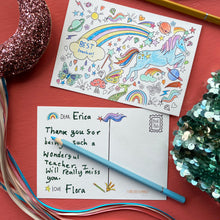 DEAR Erica
Thank you for
being such a
wonderful
Teacher. I
Will really miss
you.
LOVE Flora